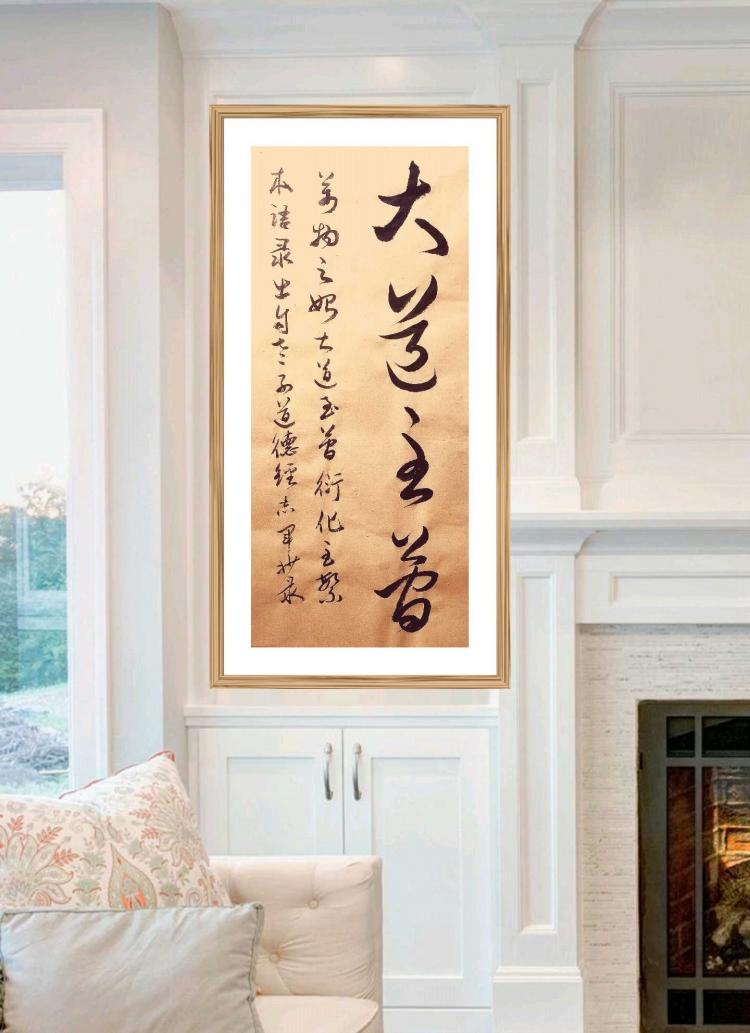 大道至简
万物之始大道至简衍化至繁
本语录出自老子道德经志军录